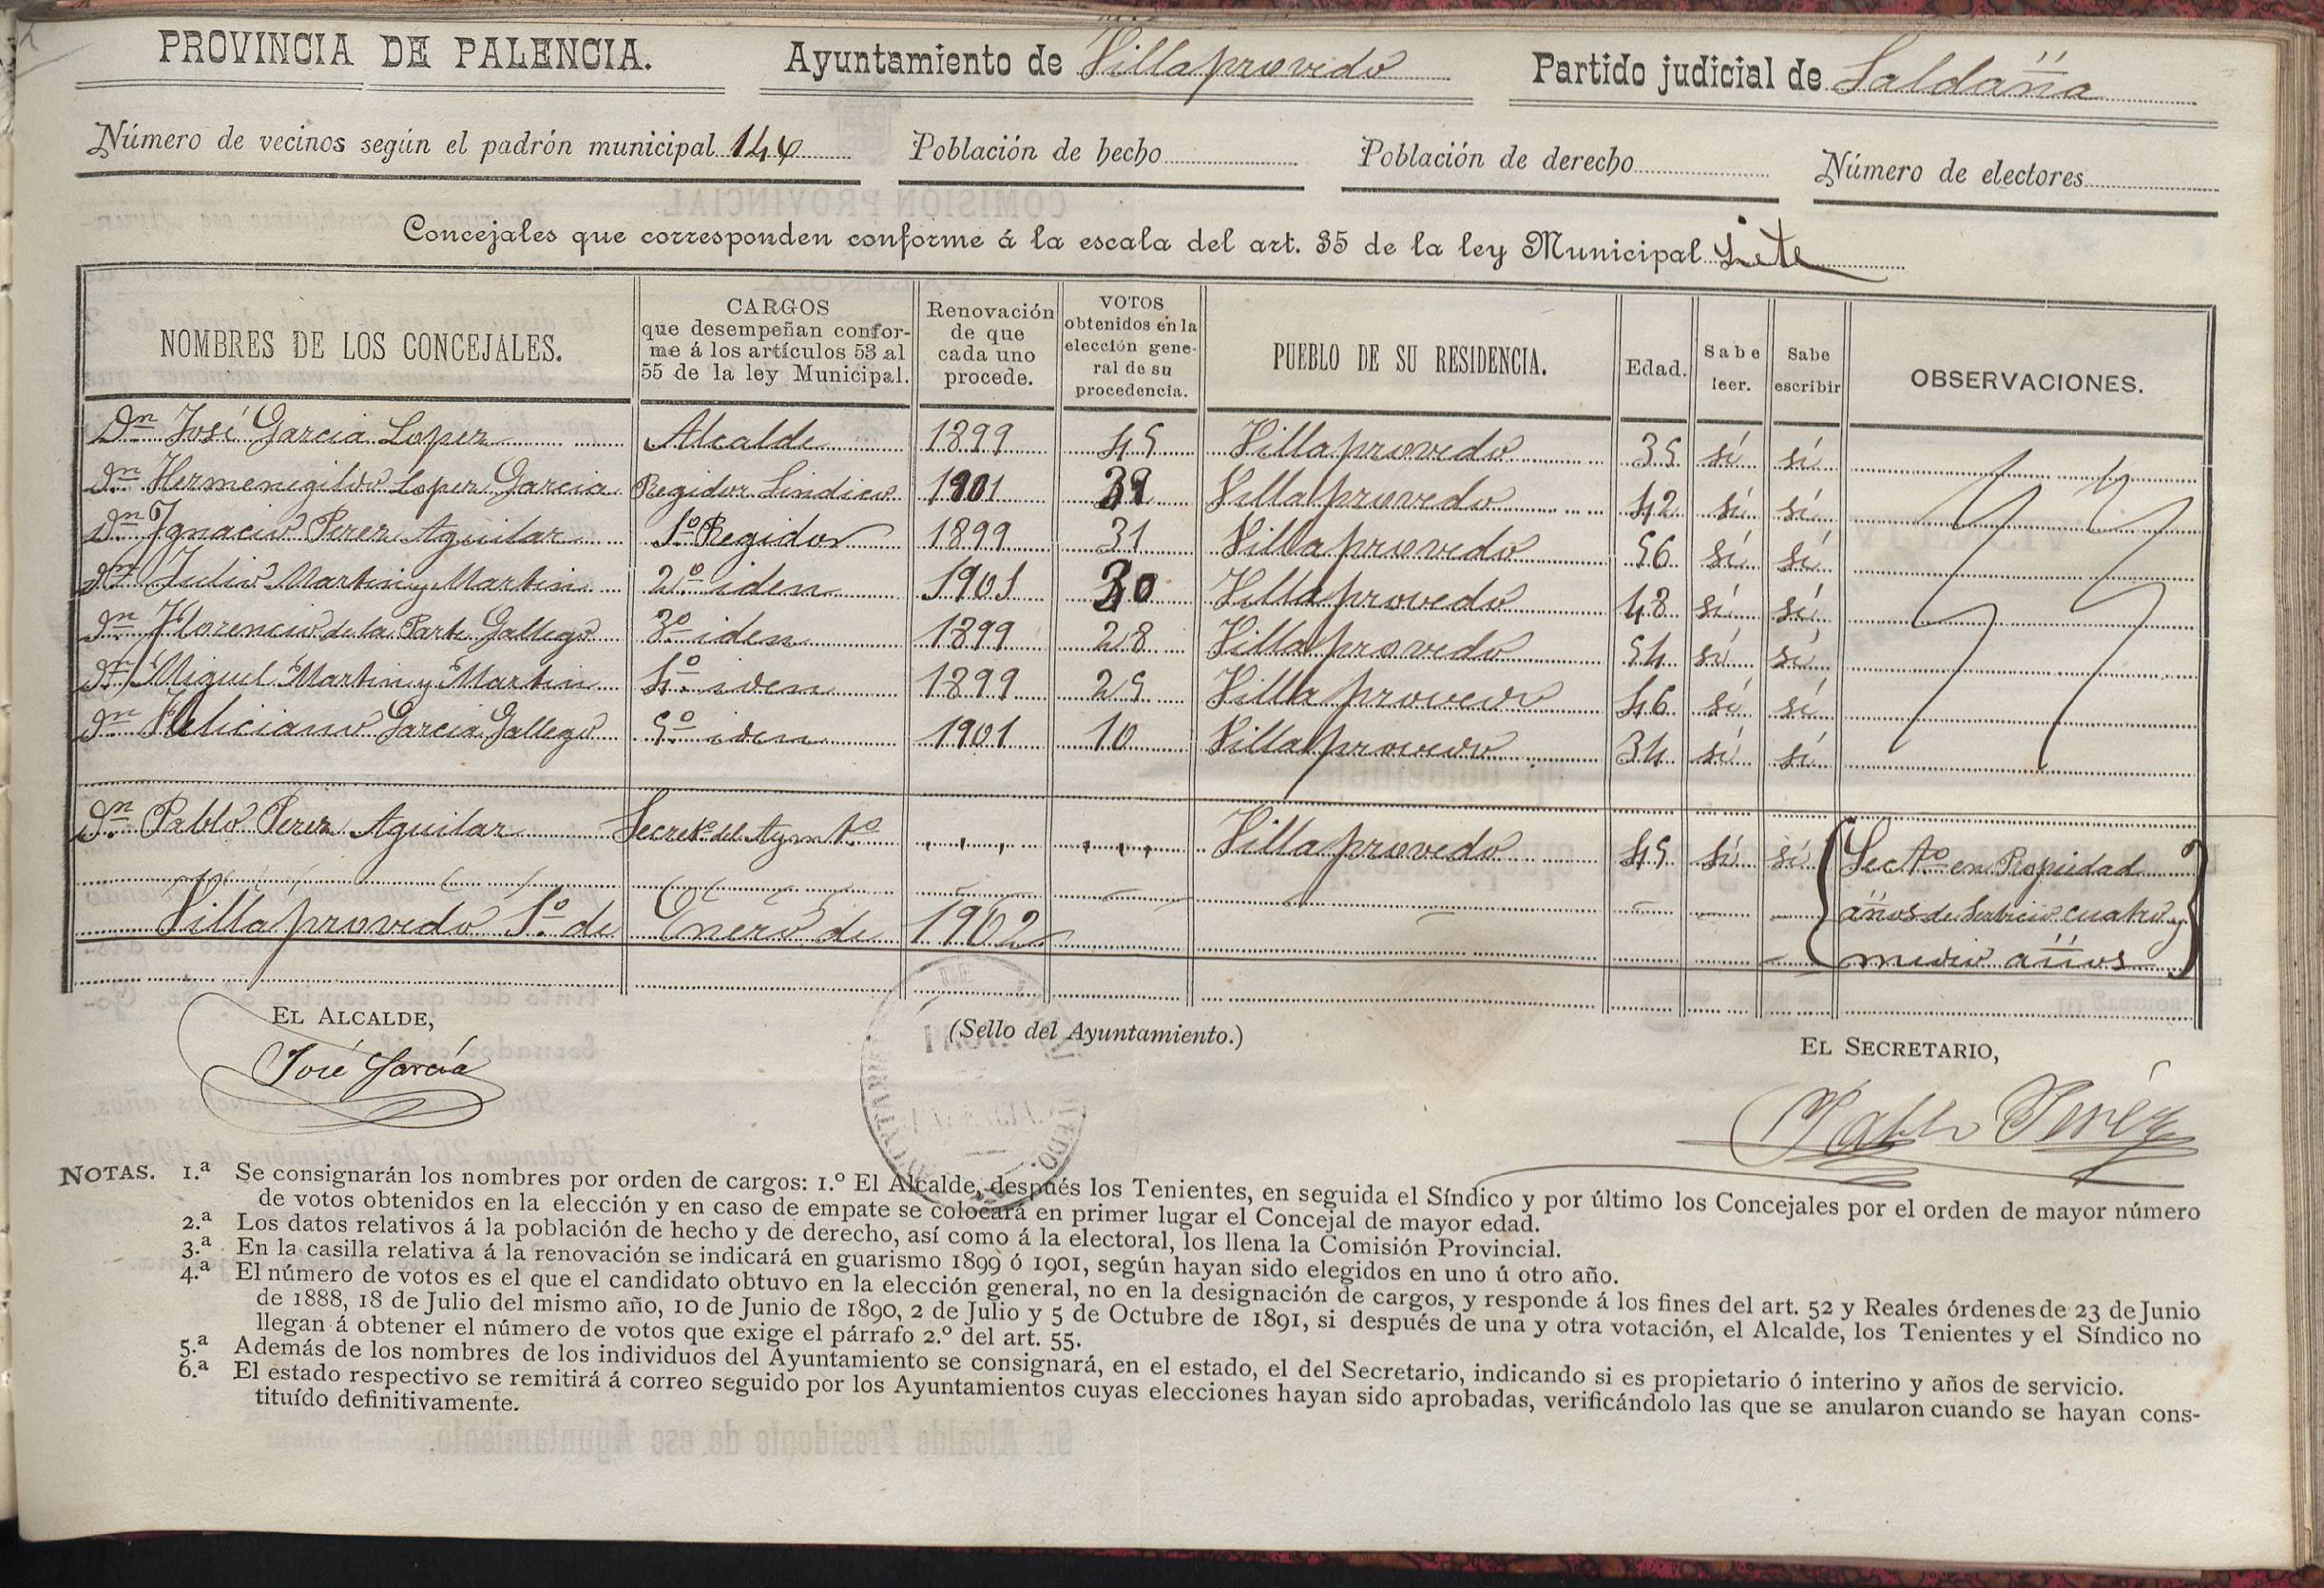 PROVINCIA DE PALENCIA. Ayuntamiento de Villaprovedo Partido judicial de Saldaña
Número de vecinos según el padrón municipal 140 Población de hecho Población de derecho Número de electores
Concejales que corresponden conforme á la escala del art. 35 de la ley Municipal siete
NOMBRES DE LOS CONCEJALES. CARGOS que desempeñan conforme á los artículos 53 al 55 de la ley Municipal. Renovación de que cada uno procede. VOTOS obtenidos en la elección general de su procedencia. PUEBLO DE SU RESIDENCIA. Edad. Sabe leer. Sabe escribir OBSERVACIONES.
Dn José Garcia Lopez Alcalde 1899 45 Villaprovedo 35 sí sí
Dn Hermenegildo Lopez Garcia Regidor Sindico 1901 39 Villaprovedo 42 sí sí
Dn Ignacio Perez Aguilar 1º Regidor 1899 31 Villaprovedo 56 sí sí
Dn Julio Martin y Martin 2º iden 1901 30 Villaprovedo 48 sí sí
Dn Florencio de la Parte Gallego 3º iden 1899 28 Villaprovedo 54 sí sí
Dn Miguel Martin y Martin 4º iden 1899 25 Villaprovedo 46 sí sí
Dn Feliciano Garcia Gallego 5º iden 1901 10 Villaprovedo 34 sí sí
Dn Pablo Perez Aguilar Secretº del Ayuntº Villaprovedo 45 sí sí Sectº en Propiedad
años de servicio cuatro y
medio años
Villaprovedo 1º de Enero de 1902
EL ALCALDE, (Sello del Ayuntamiento.) EL SECRETARIO,
José García Pablo Peréz
NOTAS. 1.ª Se consignarán los nombres por orden de cargos: 1.º El Alcalde, después los Tenientes, en seguida el Síndico y por último los Concejales por el orden de mayor número
de votos obtenidos en la elección y en caso de empate se colocará en primer lugar el Concejal de mayor edad.
2.ª Los datos relativos á la población de hecho y de derecho, así como á la electoral, los llena la Comisión Provincial.
3.ª En la casilla relativa á la renovación se indicará en guarismo 1899 ó 1901, según hayan sido elegidos en uno ú otro año.
4.ª El número de votos es el que el candidato obtuvo en la elección general, no en la designación de cargos, y responde á los fines del art. 52 y Reales órdenes de 23 de Junio
de 1888, 18 de Julio del mismo año, 10 de Junio de 1890, 2 de Julio y 5 de Octubre de 1891, si después de una y otra votación, el Alcalde, los Tenientes y el Síndico no
llegan á obtener el número de votos que exige el párrafo 2.º del art. 55.
5.ª Además de los nombres de los individuos del Ayuntamiento se consignará, en el estado, el del Secretario, indicando si es propietario ó interino y años de servicio.
6.ª El estado respectivo se remitirá á correo seguido por los Ayuntamientos cuyas elecciones hayan sido aprobadas, verificándolo las que se anularon cuando se hayan cons-
tituído definitivamente.